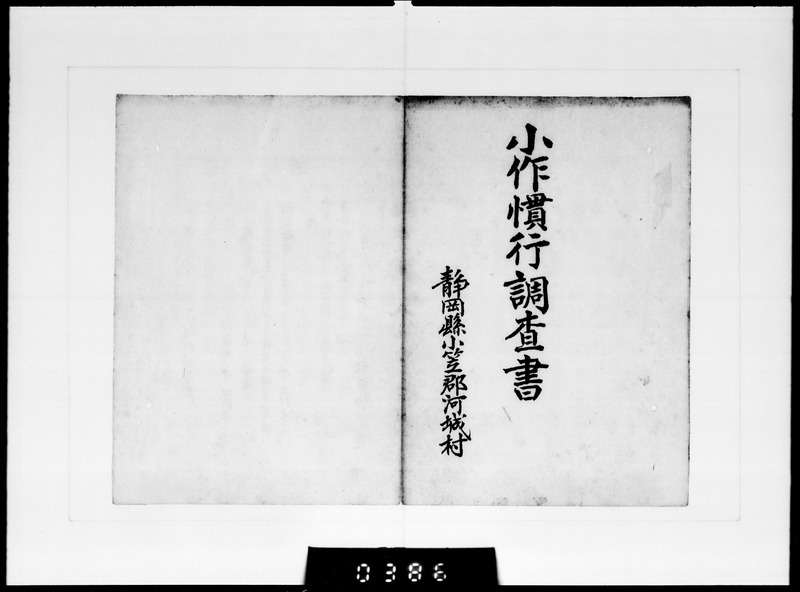 小作慣行調査書
静岡縣小笠郡河城村
0386